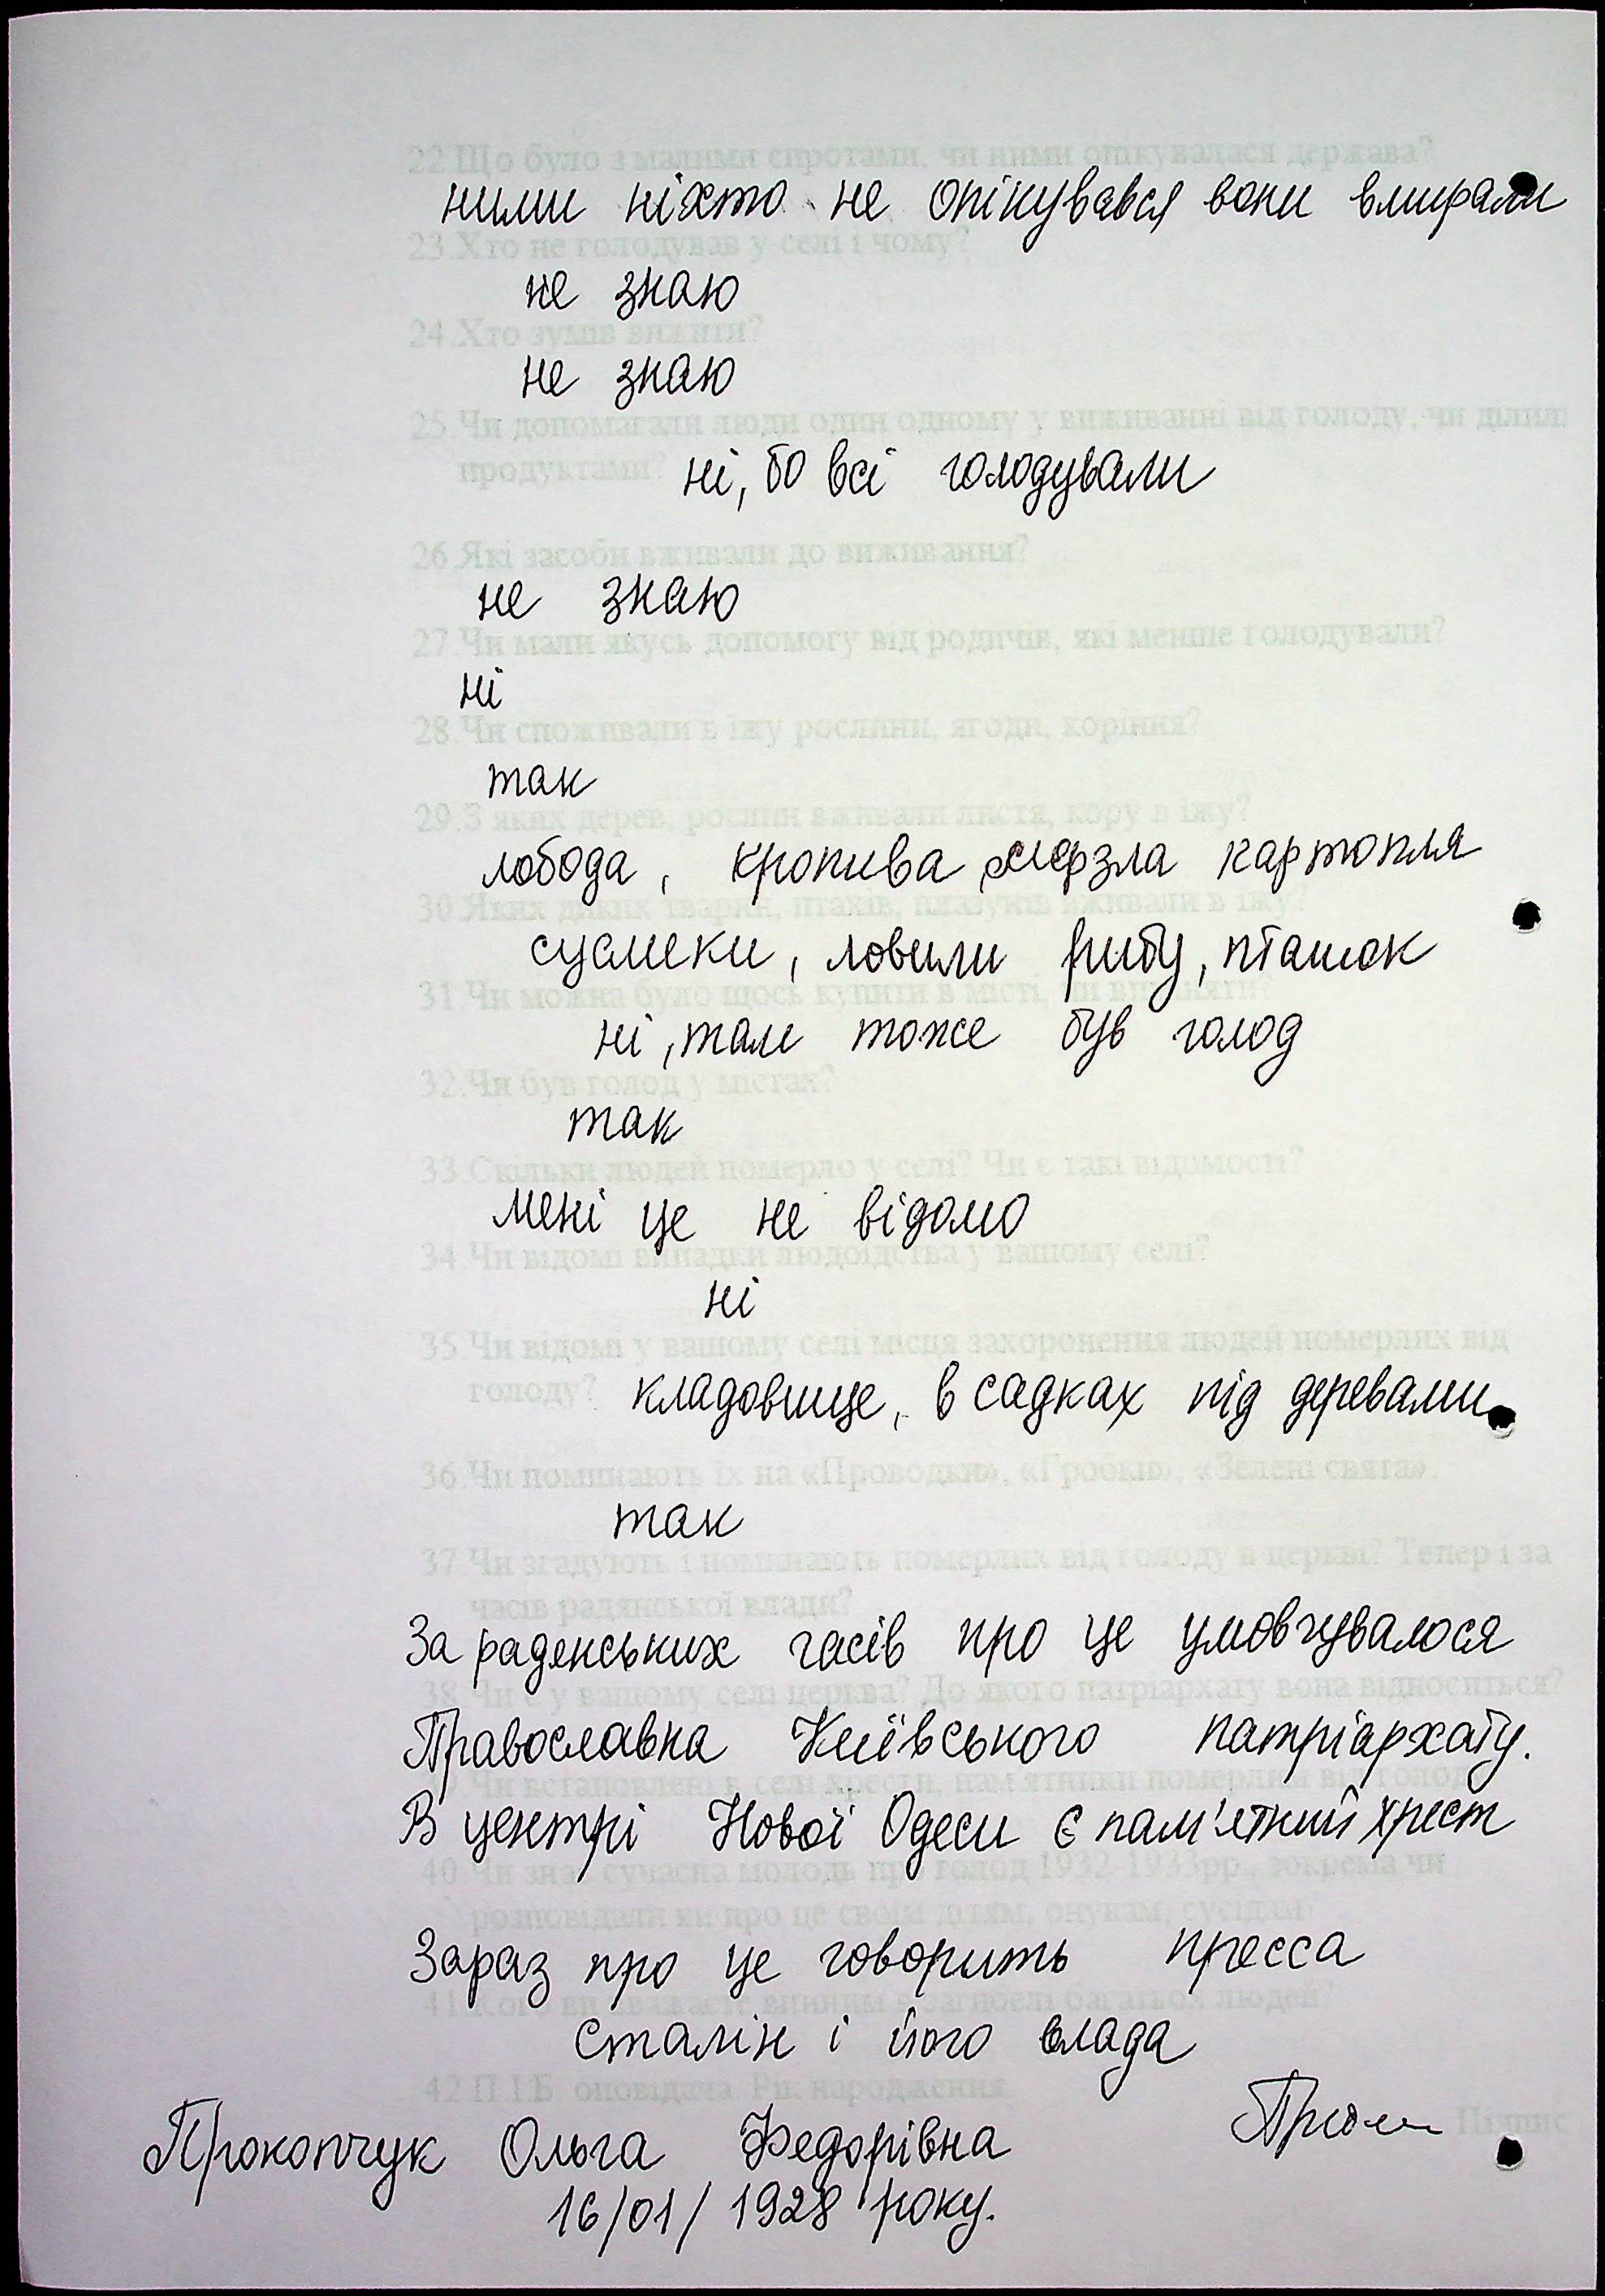 22.Що було з малими сиротами, чи ними опікувалася держава?
ними ніхто не опікувався вони вмирали
23.Хто не голодував у селі і чому?
не знаю
24.Хто зумів вижити?
не знаю
25.Чи допомагали люди один одному у виживанні від голоду, чи ділил
продуктами?
ні, бо всі голодували
26.Які засоби вживали до виживання?
не знаю
27.Чи мали якусь допомогу від родичів, які менше голодували?
ні
28.Чи споживали в їжу рослини, ягоди, коріння?
так
29.З яких дерев, рослин вживали листя, кору в їжу?
лобода, кропива, мерзла картопля
30.Яких диких тварин, птахів, плазунів вживали в їжу?
суслики, ловили рибу, пташок
31.Чи можна було щось купити в місті, чи виміняти?
ні, там тоже був голод
32.Чи був голод у містах?
так
33.Скільки людей померло у селі? Чи є такі відомості?
мені це не відомо
34.Чи відомі випадки людоїдства у вашому селі?
ні
35.Чи відомі у вашому селі місця захоронення людей померлих від
голоду?
кладовище, в садках під деревами.
36.Чи поминають їх на «Проводки», «Гробки», «Зелені свята».
так
37.Чи згадують і поминають померлих від голоду в церкві? Тепер і за
часів радянської влади?
За раденських часів про це умовчувалося
38.Чи є у вашому селі церква? До якого патріархату вона відноситься?
Православна Київського патріархату.
39.Чи встановлені в селі хрести, пам'ятники померлим від голоду
В центрі Нової Одеси є пам'етний хрест
40.Чи знає сучасна молодь про голод 1932-1933рр., зокрема чи
розповідали ви про це своїм дітям, онукам, сусідам?
Зараз про це говорить пресса
41.Кого ви вважаєте винним в загибелі багатьох людей?
Сталін і його влада
42.П.І.Б. оповідача. Рік народження.
Підпис
Прокопчук Ольга Федорівна
16/01/1928 року.